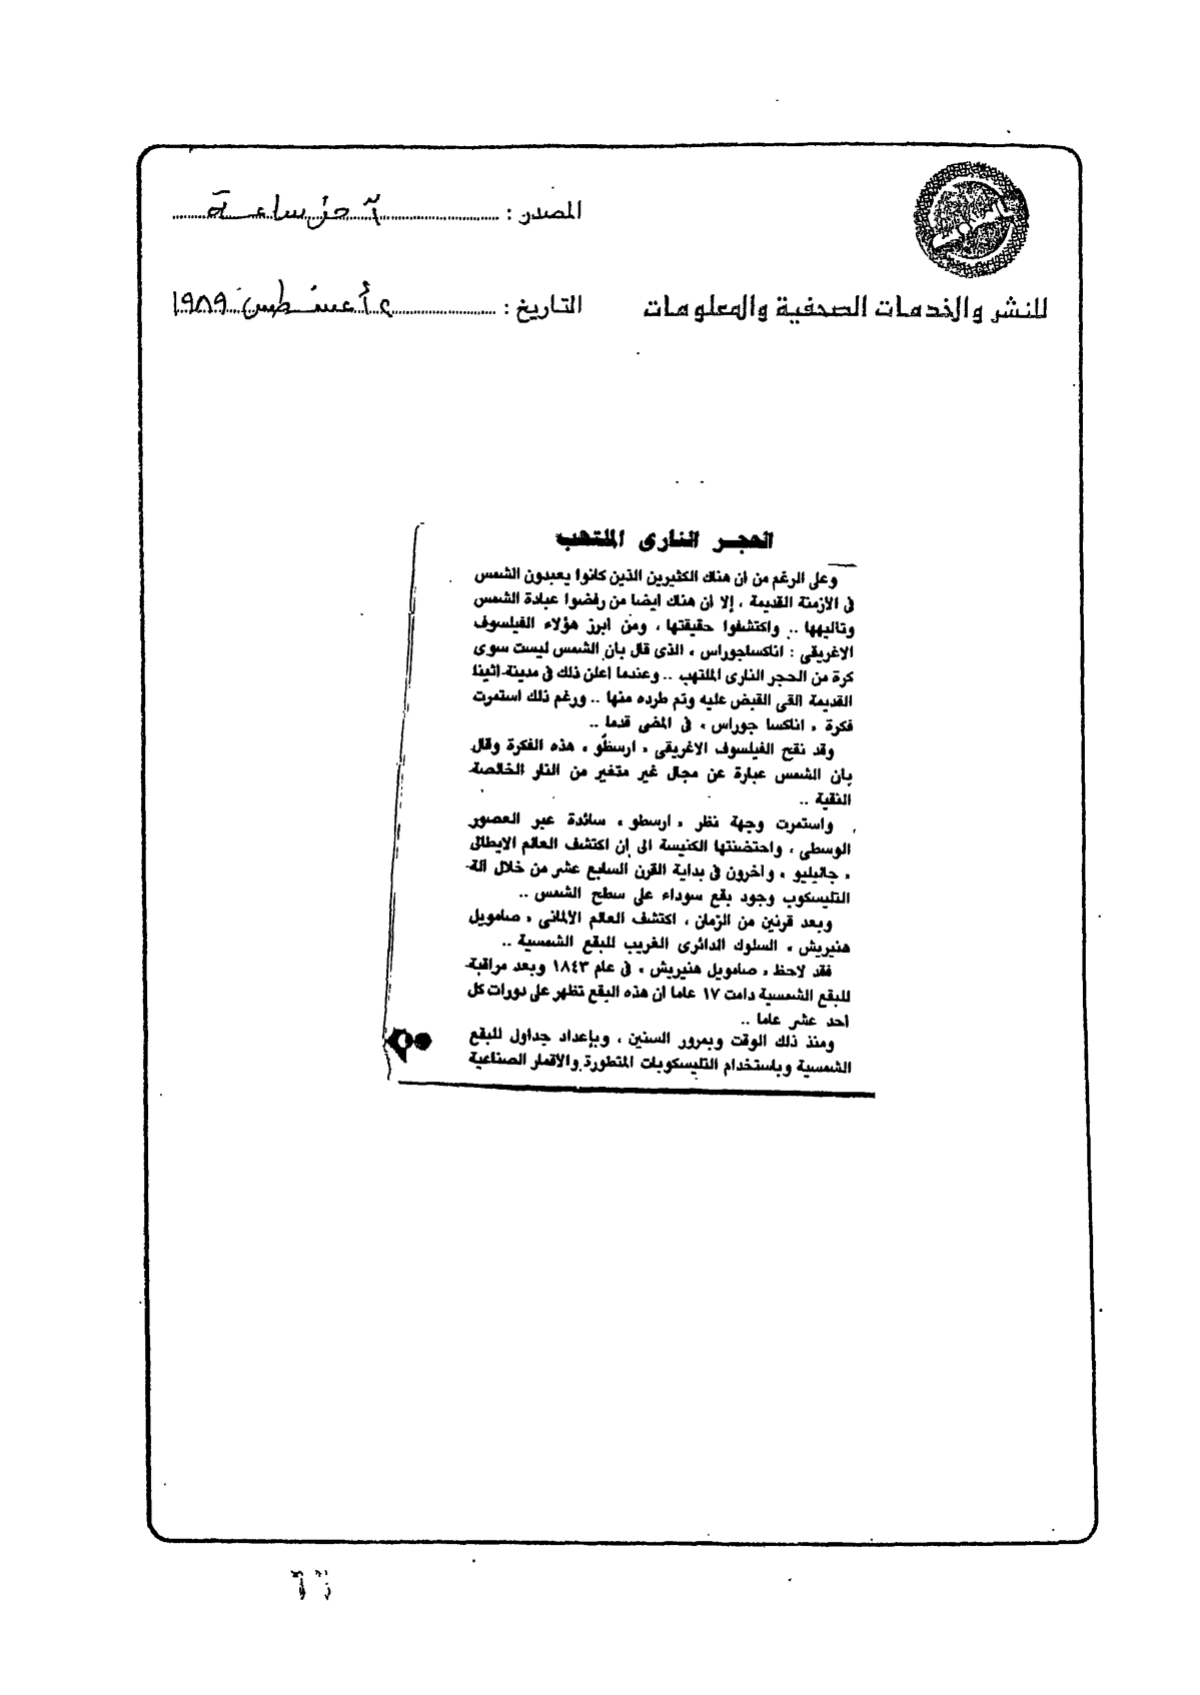 المصدر : آخر ساعة
للنشر والخدمات الصحفية والمعلومات
التاريخ : ٢ أغسطس ١٩٨٩
الحجر النارى الملتهب
وعلى الرغم من ان هناك الكثيرين الذين كانوا يعبدون الشمس
فى الازمنة القديمة ، إلا ان هناك ايضا من رفضوا عبادة الشمس
وتاليهها .. واكتشفوا حقيقتها ، ومن ابرز هؤلاء الفيلسوف
الاغريقى : اناكساجوراس ، الذى قال بان الشمس ليست سوى
كرة من الحجر النارى الملتهب .. وعندما اعلن ذلك فى مدينة اثينا
القديمة القى القبض عليه وتم طرده منها .. ورغم ذلك استمرت
فكرة ، اناكسا جوراس ، فى المضى قدما ..
وقد نقح الفيلسوف الاغريقى ، ارسطو ، هذه الفكرة وقال
بان الشمس عبارة عن مجال غير متغير من النار الخالصة
النقية ..
واستمرت وجهة نظر ، ارسطو ، سائدة عبر العصور
الوسطى ، واحتضنتها الكنيسة الى ان اكتشف العالم الايطالى
، جاليليو ، واخرون فى بداية القرن السابع عشر من خلال آلة
التليسكوب وجود بقع سوداء على سطح الشمس ..
وبعد قرنين من الزمان ، اكتشف العالم الالمانى ، صامويل
هنيريش ، السلوك الدائرى الغريب للبقع الشمسية ..
فقد لاحظ ، صامويل هنيريش ، فى عام ١٨٤٣ وبعد مراقبة
للبقع الشمسية دامت ١٧ عاما ان هذه البقع تظهر على دورات كل
احد عشر عاما ..
ومنذ ذلك الوقت وبمرور السنين ، وبإعداد جداول للبقع
الشمسية وباستخدام التليسكوبات المتطورة والاقمار الصناعية